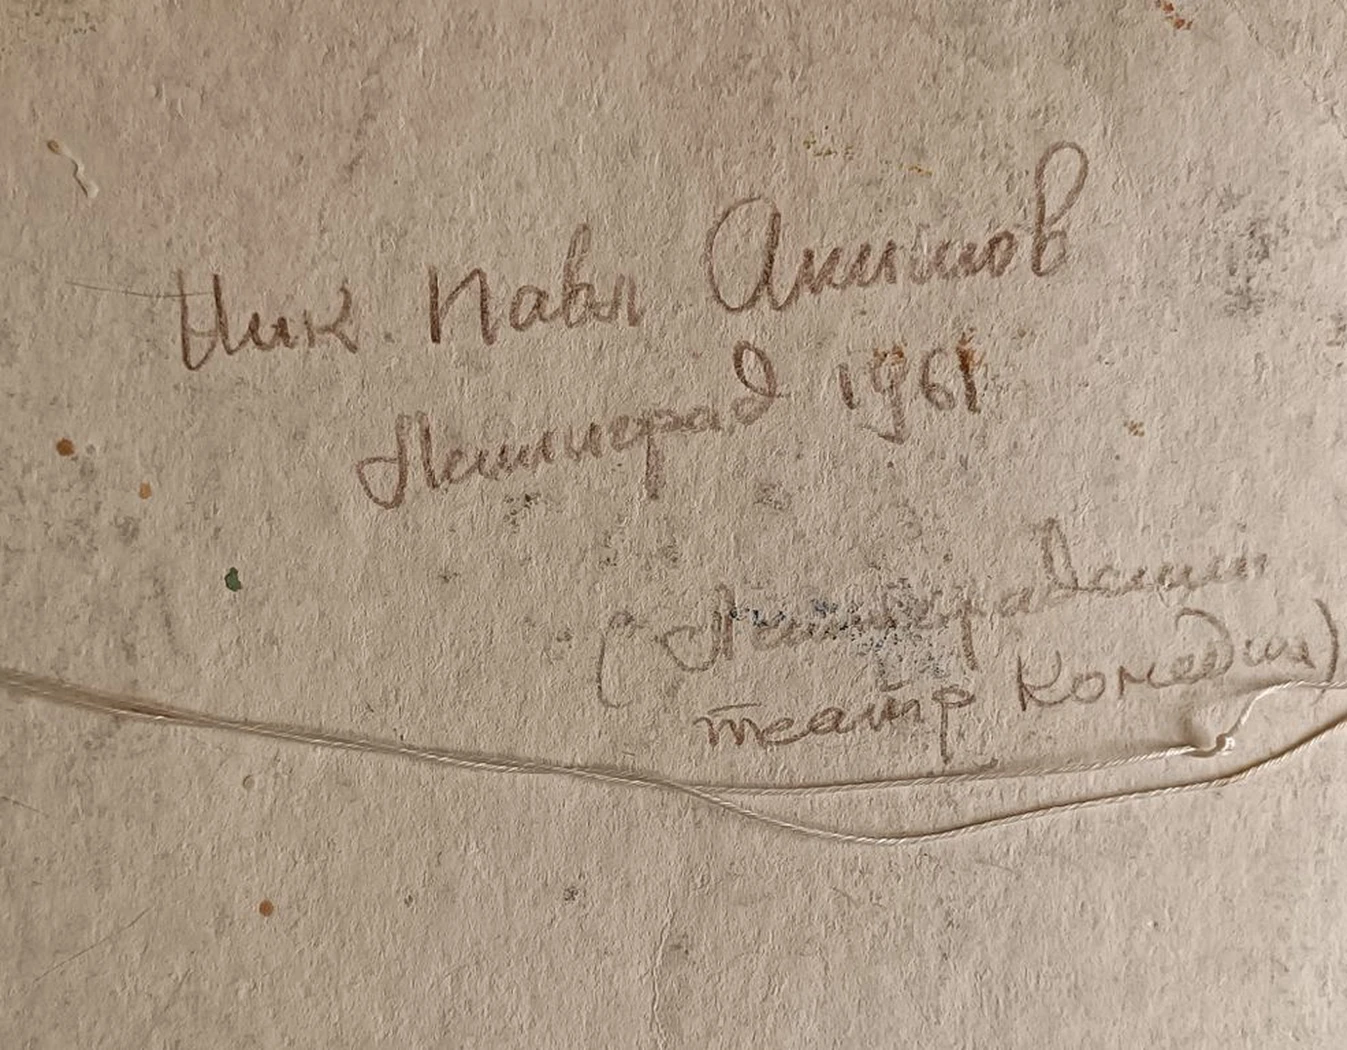 Ник. Павл Акимов
Ленинград 1961
(Ленинградский
театр Комедии)